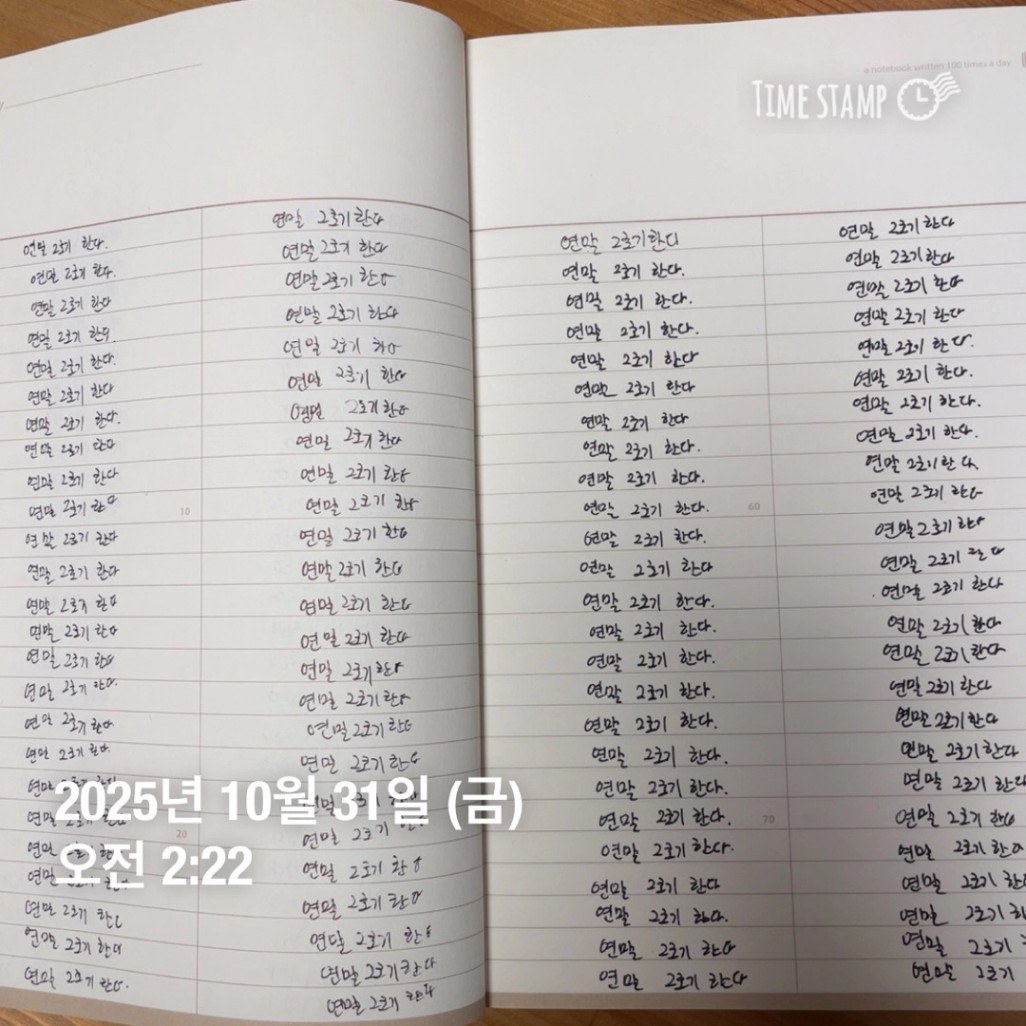 a notebook written 100 times a day
TIME STAMP
연말 2호기 한다.
연말 2호기 한다.
연말 2호기 한다
연말 2호기 한다.
연말 2호기 한다.
연말 2호기 한다
연말 2호기 한다.
연말 2호기 한다
연말 2호기 한다
연말 2호기 한다
10
연말 2호기 한다
연말 2호기 한다
연말 2호기 한다
연말 2호기 한다
연말 2호기 한다
연말 2호기 한다.
연말 2호기 한다
연말 2호기 한다.
연말
연말
20
연말
연말
연말 2호기 한다
연말 2호기 한다
연말 2호기 한다.
연말 2호기 한다
연말 2호기 한다
연말 2호기 한다
연말 2호기 한다
연말 2호기 한다
연말 2호기 한다
연말 2호기 한다
연말 2호기 한다
연말 2호기 한다
연말 2호기 한다
연말 2호기 한다
연말 2호기 한다
연말 2호기 한다
연말 2호기 한다
연말 2호기 한다
연말 2호기 한다
연말 2호기 한다
연말 2호기 한다
연말 2호기
연말 2호기 한다
연말 2호기 한다
연말 2호기 한다
연말 2호기 한다
연말 2호기 한다
연말 2호기 한다
연말 2호기 한다
연말 2호기 한다.
연말 2호기 한다.
연말 2호기 한다.
연말 2호기 한다
연말 2호기 한다
연말 2호기 한다
연말 2호기 한다.
연말 2호기 한다.
연말 2호기 한다.
60
연말 2호기 한다.
연말 2호기 한다
연말 2호기 한다.
연말 2호기 한다.
연말 2호기 한다.
연말 2호기 한다.
연말 2호기 한다.
연말 2호기 한다.
연말 2호기 한다.
연말 2호기 한다.
70
연말 2호기 한다.
연말 2호기 한다
연말 2호기 한다.
연말 2호기 한다
연말 2호기 한다
연말 2호기 한다
연말 2호기 한다
연말 2호기 한다
연말 2호기 한다
연말 2호기 한다.
연말 2호기 한다.
연말 2호기 한다.
연말 2호기 한다.
연말 2호기 한다.
연말 2호기 한다
연말 2호기 한다
연말 2호기 한다
연말 2호기 한다
연말 2호기 한다
연말 2호기 한다
연말 2호기 한다
연말 2호기 한다
연말 2호기 한다
연말 2호기 한다
연말 2호기 한다
연말 2호기 한다
연말 2호기 한다
연말 2호기 한
연말 2호기
연말 2호기
2025년 10월 31일 (금)
오전 2:22